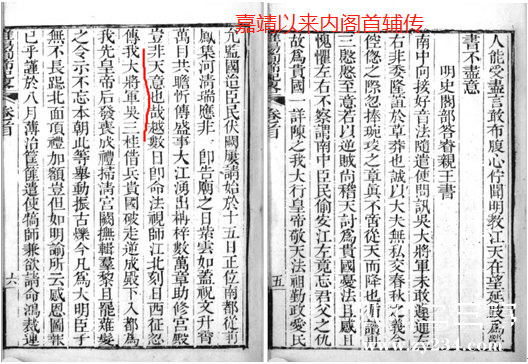 嘉靖以来内阁首辅传
人能受盡言敢布腹心佇聞明教江天在望延跂為勞
書不盡意
明史閣部答睿親王書
南中向接好音法隨遣使問訊吳大將軍未敢遽通左
右非委隆誼於草莽也誠以大夫無私交春秋之義今
倥傯之際忽捧琬琰之章真不啻從天而降也循讀再
三慇慇至意若以逆賊尚稽天討為貴國憂法且感且
愧懼左右不察謂南中臣民偷安江左竟忘君父之仇
故為貴國一詳陳之我大行皇帝敬天法祖勤政愛民
卷首
五
允監國迨臣民伏闕屢請始於十五日正位南都從前
鳳集河清瑞應非一即告廟之日紫雲如蓋祝文升霄
萬目共瞻忻傳盛事大江湧出柟梓數萬章助修宮殿
豈非天意也哉越數日即命法視師江北刻日西征忽
傳我大將軍吳三桂借兵貴國破走逆成殿下入都為
我先皇帝后發喪成禮掃清宮闕撫輯羣黎且罷薙髮
之令示不忘本朝此等舉動振古爍今凡為大明臣子
無不長跽北面頂禮加額豈但如明諭所云感恩圖報
已乎謹於八月薄治筐篚遣使犒師兼欲請命鴻裁連
卷首
六